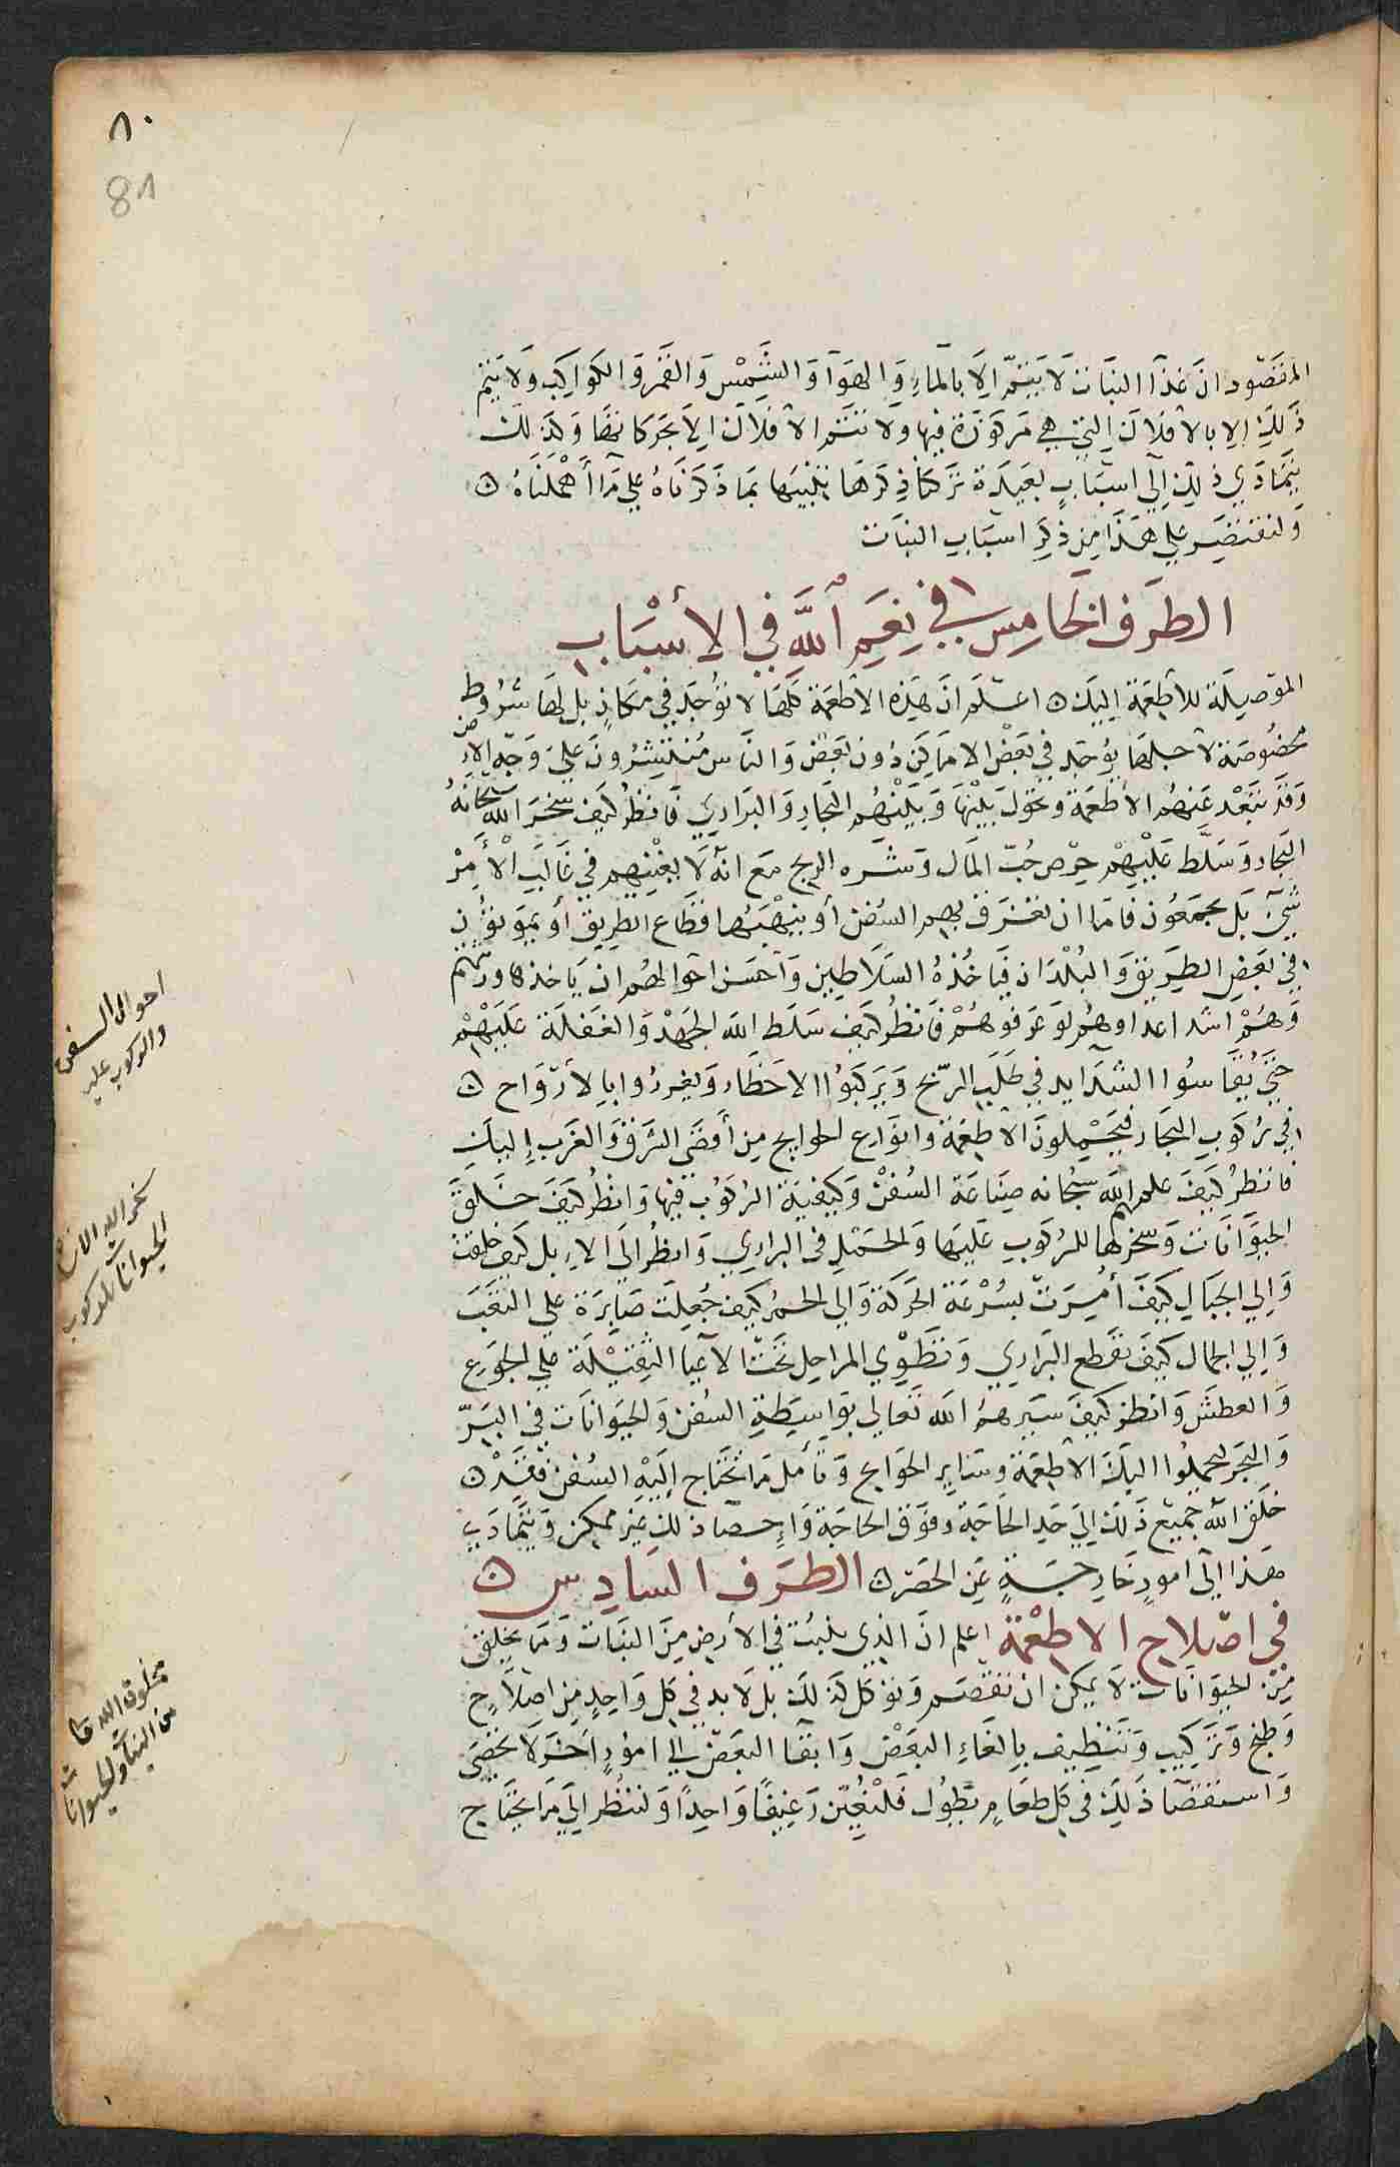 ٨٠
81
المقصود ان غذا النبات لا يتم الا بالماء والهوآ والشمس والقمر والكواكب ولا يتم
ذلك الا بالافلاك التي هي مركوزة فيها ولا تتم الافلاك الا بحركاتها وكذلك
يتمادي ذلك الي اسباب بعيدة تركنا ذكرها تنبيها بما ذكرناه علي ما أهملناه ۞
ولنقتصر علي هذا من ذكر اسباب النبات
الطرف الخامس في نعم الله في الأسباب
الموصلة للاطعمة اليك ۞ اعلم ان هذه الاطعمة كلها لا توجد في مكان بل لها شروط
مخصوصة لاجلها يوجد في بعض الاماكن دون بعض والناس منتشرون علي وجه الارض
وقد تبعد عنهم الاطعمة وتحول بينها وبينهم البحار والبراري فانظر كيف سخر الله سبحانه
التجار وسلط عليهم حرص حب المال وشره الربح مع انه لا يغنيهم في غالب الأمر
شيء بل يجمعون فاما ان تغرق بهم السفن أو ينهبها قطاع الطريق أو يموتون
في بعض الطريق والبلدان فياخذه السلاطين وأحسن احوالهم ان ياخذها ورثتهم
وهم اشد اعداوهم لو عرفوهم فانظر كيف سلط الله الجهد والغفلة عليهم
حتي يقاسوا الشدايد في طلب الربح ويركبوا الاخطار ويغرروا بالارواح ۞
في ركوب البحار فيحملون الاطعمة وانواع الحوايج من أقصى الشرق والغرب إليك
فانظر كيف علمهم الله سبحانه صناعة السفن وكيفية الركوب فيها وانظر كيف خلق
الحيوانات وسخرها للركوب عليها والحمل في البراري وانظر الي الابل كيف خلقت
والي الجبال كيف أمرت بسرعة الحركة والي الحمر كيف جعلت صابرة علي التعب
والي الجمال كيف تقطع البراري وتطوي المراحل تحت الاعبا الثقيلة علي الجوع
والعطش وانظر كيف سيرهم الله تعالي بواسطة السفن والحيوانات في البر
والبحر ليحملوا اليك الاطعمة وساير الحوايج وتأمل ما تحتاج إليه السفن فقد ۞
خلق الله جميع ذلك الي حد الحاجة وفوق الحاجة وإحصا ذلك غير ممكن ويتمادي
هذا الي امور خارجة عن الحصر ۞ الطرف السادس ۞
في اصلاح الاطعمة اعلم ان الذي ينبت في الأرض من النبات وما يخلق
من الحيوانات لا يمكن ان تقضم وتوكل كذلك بل لا بد في كل واحد من اصلاح
وطبخ وتركيب وتنظيف بالقاء البعض وابقا البعض الي امور اخر لا تحصى
واستقصا ذلك في كل طعام يطول فلنعين رغيفا واحدا ولننظر الي ما يحتاج
احوال السفن
والركوب عليه
سخر الله
الحيوانات للركوب
مخلوق الله
من النبات والحيوانات